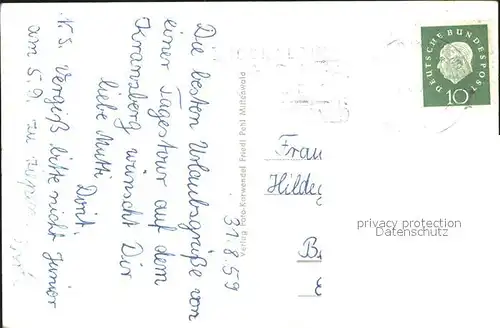 Die besten Urlaubsgrüße von
einer Tagestour auf dem
Kranzberg wünscht Dir
liebe Mutti
Dorit.
N.S. Vergiß bitte nicht Junior
am 5.9. zu
31.8.59
Verlag Foto-Karwendel Friedl Pehl Mittenwald
DEUTSCHE BUNDESPOST
10
Frau
Hildeg
B
privacy protection
Datenschutz